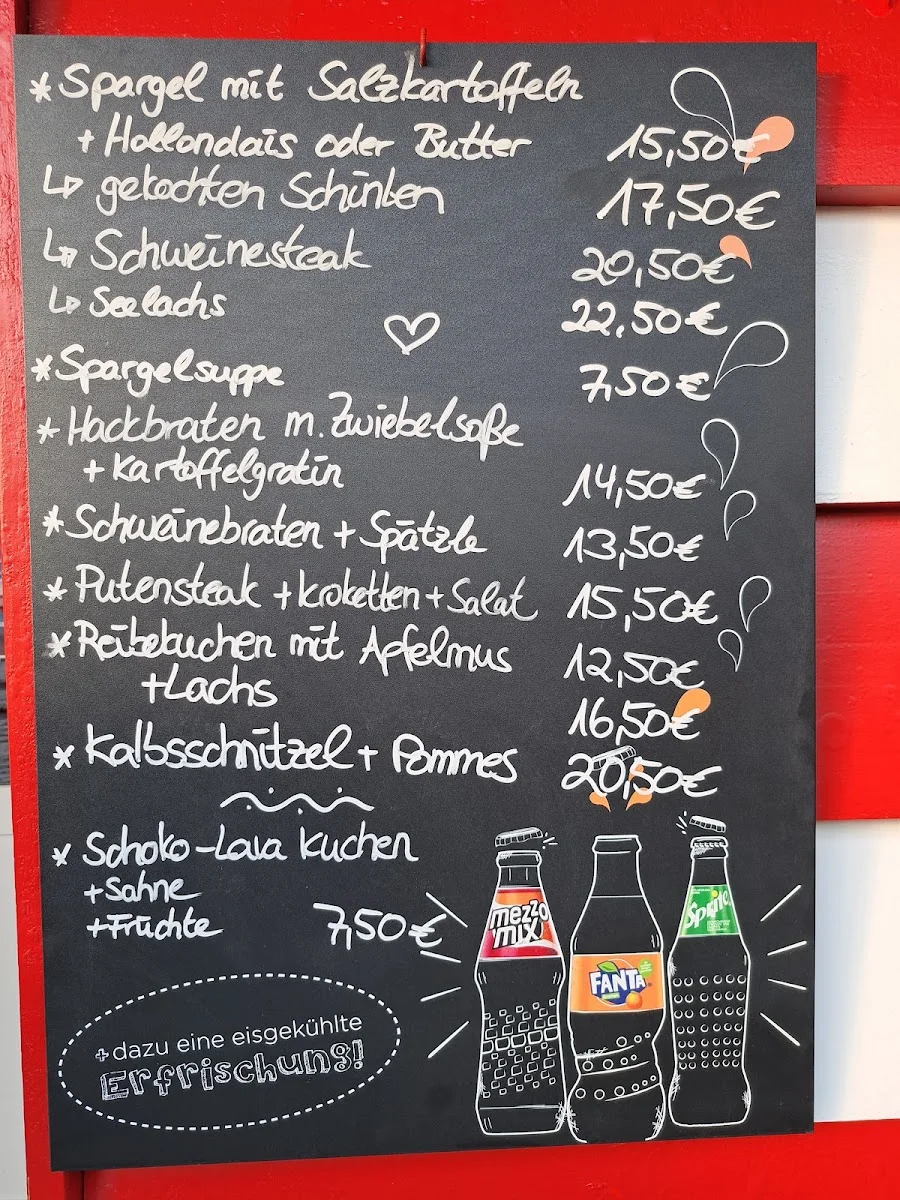 * Spargel mit Salzkartoffeln
+ Hollondais oder Butter 15,50€
↳ gekochten Schinken 17,50€
↳ Schweinesteak 20,50€
↳ Seelachs 22,50€
* Spargelsuppe 7,50€
* Hackbraten m. Zwiebelsoße
+ Kartoffelgratin 14,50€
* Schweinebraten + Spätzle 13,50€
* Putensteak + Kroketten + Salat 15,50€
* Reibekuchen mit Apfelmus 12,50€
+ Lachs 16,50€
* Kalbsschnitzel + Pommes 20,50€
* Schoko-Lava Kuchen
+ Sahne
+ Früchte 7,50€
mezzo
mix
FANTA
Sprite
+ dazu eine eisgekühlte
Erfrischung!